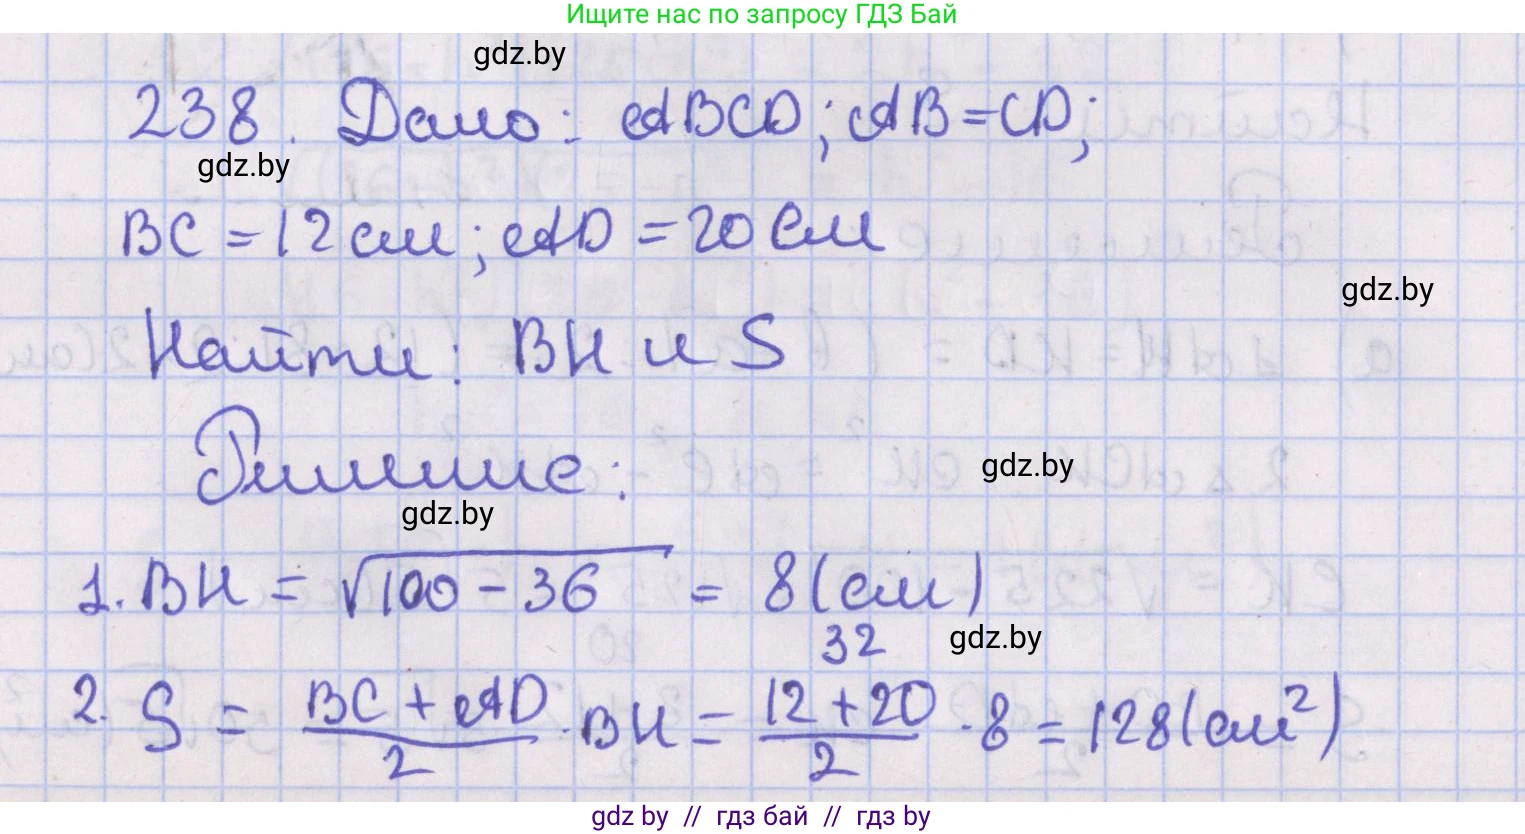 Ищите нас по запросу ГДЗ Бай
gdz.by
238. Дано: ABCD; AB=CD;
gdz.by
BC = 12 см; AD = 20 см
gdz.by
Найти: BH и S
Решение:
gdz.by
gdz.by
1. BH = √100 - 36 = 8 (см)
32
gdz.by
2. S = BC + AD / 2 · BH = 12 + 20 / 2 · 8 = 128 (см²)
gdz by // гдз бай // гдз by